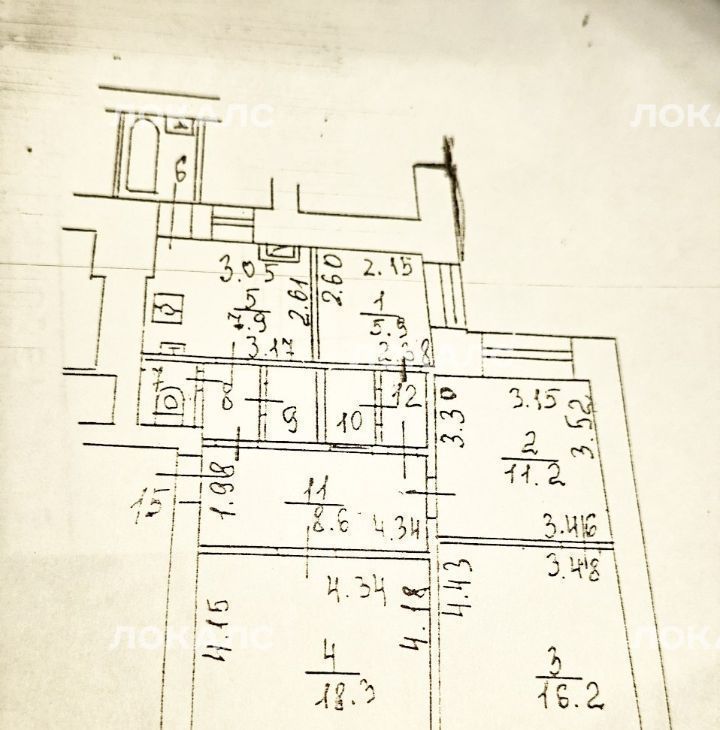 ЛОКАЛС
ЛОКАЛС
6
3.05
2.60
2.15
5
7.9
2.61
1
5.9
3.17
2.38
7
8
9
10
12
3.30
3.15
3.52
2
11.2
15
1.98
11
8.6
4.34
3.46
3.48
4.15
4.34
4.18
4.43
4
18.3
3
16.2
ЛОКАЛС
ЛОКАЛС